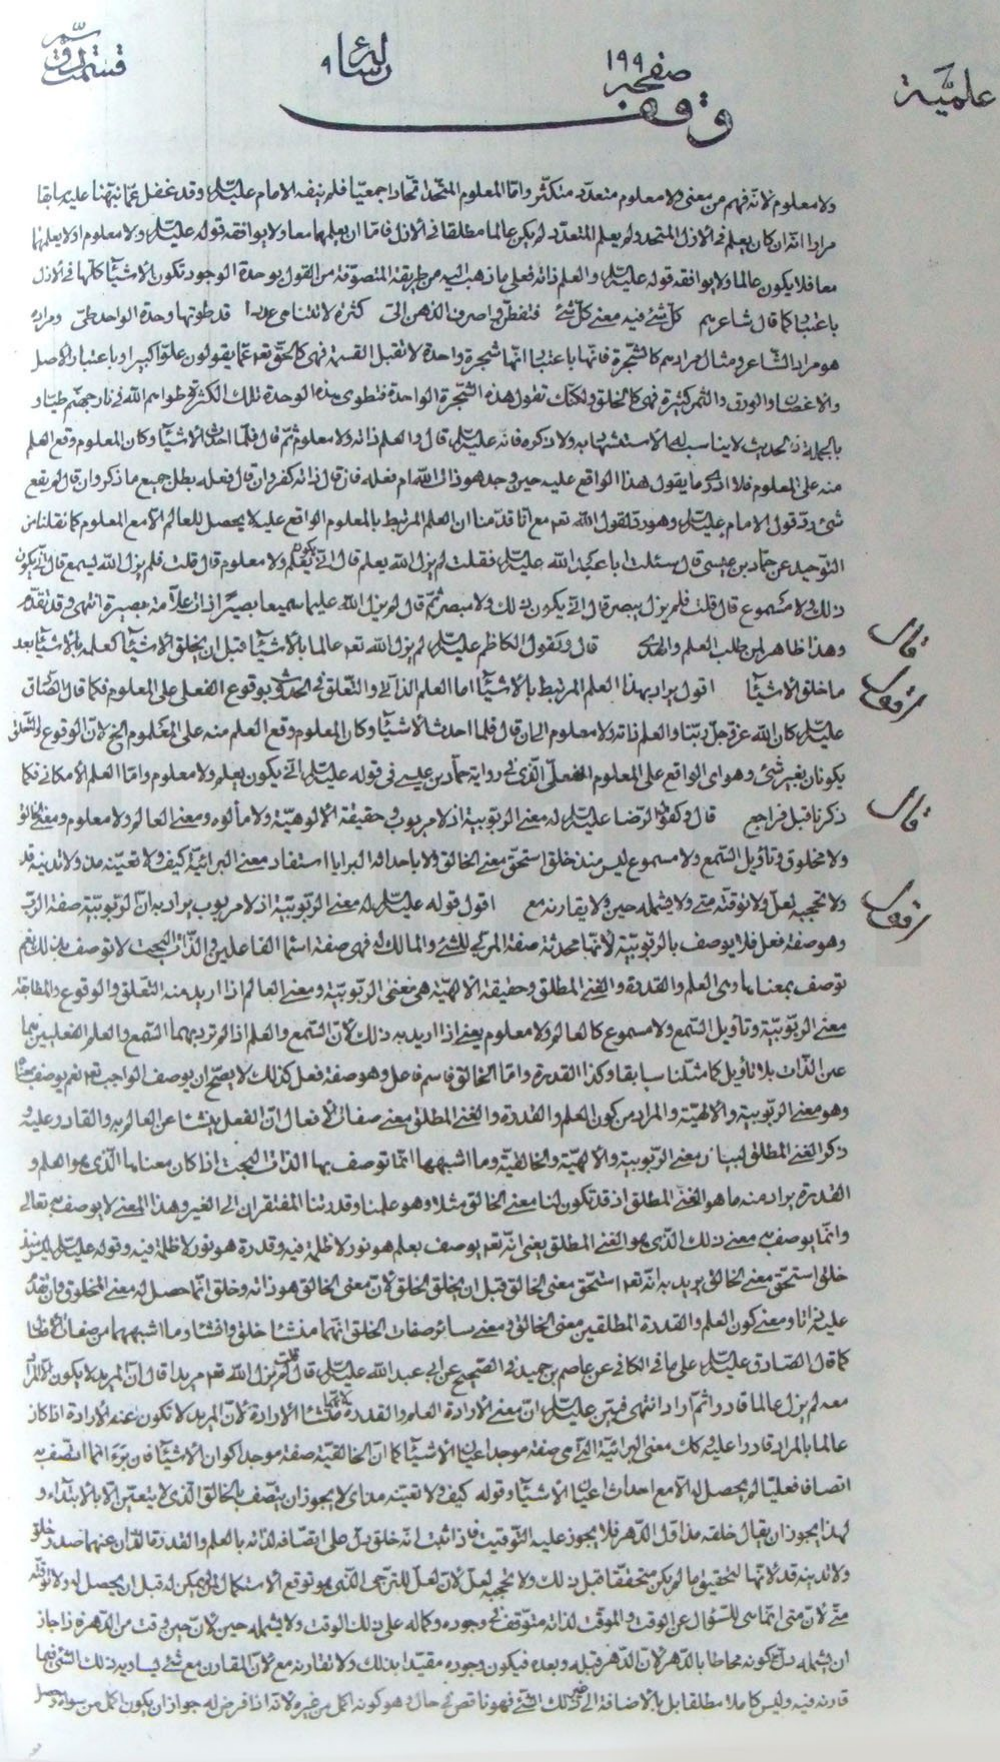 علمیّة
صفحه ١٩٩
رساله ٩
وقف
ولا معلوم لانّه فهم من معنی ولا معلوم متعدّد متکثّر وامّا المعلوم المتّحد اتّحادا جمعیّا فلم ینفه الامام علیه السّلم وقد غفل عمّا نبّهنا علیه سابقا
مرارا انّه ان کان یعلم فی الازل المتحد ولم یعلم المتعدّد لم یکن عالما مطلقا فی الازل فامّا ان یعلمها معا ولا یوافقه قوله علیه السّلم ولا معلوم اولا یعلمها
معا فلا یکون عالما ولا یوافقه قوله علیه السّلم والعلم ذاته فعلی ما ذهب الیه من طریقة المتصوّفة من القول بوحدة الوجود تکون الاشیآء کلّها فی الازل
باعتبار کما قال شاعرهم کل شئ فیه معنی کل شئ فتفطّن واصرف الذهن الیّ کثرة لا تتناهی عددا قد طوتها وحدة الواحد طیّ ومراده
هو مراد الشاعر ومثال مرادهم کالشّجرة فانّها باعتبار انّها شجرة واحدة لا تقبل القسمة فهی کالحقّ تعٰ عمّا یقولون علوّا کبیرا وباعتبار الاصل
والاغصان والورق والثمر کثیرة فهی کالخلق ولکنّک تقول هذه الشّجرة الواحدة فتطوی بهذه الوحدة تلک الکثرة طواهم اللّه فی نار جهنّم طیّا و
بالجملة فالحدیث لا یناسب له الاستشهاد به ولا ذکره فانّه علیه السّلم قال والعلم ذاته ولا معلوم ثمّ قال فلمّا احدث الاشیآء وکان المعلوم وقع العلم
منه علی المعلوم فلا ادری ما یقول هذا الواقع علیه حین وجد هو ذات اللّه ام فعله فان قال ذاته کفر وان قال فعله بطل جمیع ما ذکر وان قال لم یقع
شئ ردّ قول الامام علیه السّلم وهو ردّ لقول اللّه تعٰ مع انّا قدّمنا ان العلم المرتبط بالمعلوم الواقع علیه لا یحصل للعالم الّا مع المعلوم کما نقلنا من
التوحید عن حمّاد بن عیسی قال سئلت ابا عبد اللّه علیه السّلم فقلت لم یزل اللّه یعلم قال انّی یکون یعلم ولا معلوم قال قلت فلم یزل اللّه یسمع قال انّی یکون
ذلک ولا مسموع قال قلت فلم یزل یبصر قال انّی یکون ذلک ولا مبصر ثمّ قال لم یزل اللّه علیما سمیعا بصیرا ذات علّامة سمیعة بصیرة انتهی وقد تقدّم
وهذا ظاهر لمن طلب العلم والهدی قال وکقول الکاظم علیه السّلم لم یزل اللّه تعٰ عالما بالاشیآء قبل ان یخلق الاشیآء کعلمه بالاشیآء بعد
ما خلق الاشیآء اقول یراد بهذا العلم المرتبط بالاشیآء اما العلم الذاتی والتعلّق فی الحدوث بوقوع الفعلی علی المعلوم فکما قال الصّادق
علیه السّلم کان اللّه عزّ وجلّ ربّنا والعلم ذاته ولا معلوم الی ان قال فلما احدث الاشیآء وکان المعلوم وقع العلم منه علی المعلوم الخ لانّ الوقوع والتعلق
یکونان بغیر شئ وهو ای الواقع علی المعلوم الفعلیّ الّذی فی روایة حمّاد بن عیسی فی قوله علیه السّلم انّی یکون یعلم ولا معلوم وامّا العلم الامکانی فکما
ذکرنا قبل فراجع قال وکقول الرّضا علیه السّلم له معنی الربوبیّة اذ لا مربوب وحقیقة الالوهیّة ولا مألوه ومعنی العالم ولا معلوم ومعنی الخالق
ولا مخلوق وتأویل السّمع ولا مسموع لیس منذ خلق استحقّ معنی الخالق ولا باحداثه البرایا استفاد معنی البرائیّة کیف ولا تغیّبه مذ ولا تدنیه قد
ولا تحجبه لعلّ ولا توقّته متی ولا یشمله حین ولا یقارنه مع اقول قوله علیه السّلم له معنی الربوبیّة اذ لا مربوب یراد به انّ الربوبیّة صفة الربّ
وهو صفة فعل فلا یوصف بالربوبیّة لانّها محدثة صفة المربّی للشئ والمالک له فهی صفة اسمآء الفاعلین والذّات البحت لا توصف بذلک نعم
توصف بمعناها وهی العلم والقدرة والغنی المطلق وحقیقة الالهیّة هی معنی الربوبیّة ومعنی العالم اذا ارید منه التعلّق والوقوع والمطابقة
معنی الربوبیّة وتأویل السّمع ولا مسموع کالعالم ولا معلوم یعنی اذا ارید به ذلک لانّ السّمع والعلم اذا لم ترد بهما السّمع والعلم الفعلیین هما
عین الذّات بلا تأویل کما مثّلنا سابقا وکذا القدرة وامّا الخالق فاسم فاعل وهو صفة فعل کذلک لا یصحّ ان یوصف الواجب تعٰ نعم یوصف بمعناه
وهو معنی الربوبیة والالهیّة والمراد من کون العلم والقدرة والغنی المطلق معنی صفات الافعال انّ الفعل ینشا عن العالم به والقادر علیه و
ذکر الغنی المطلق لبیان معنی الرّبوبیة والالهیّة والخالقیّة وما اشبهها انّما توصف بها الذات البحت اذا کان معناها الّذی هو العلم و
القدرة یراد منه ما هو الغنی المطلق اذ قد تکون لنا معنی الخالق مثلا وهو علمنا وقدرتنا المفتقران الی الغیر وهذا المعنی لا یوصف به تعالی
وانّما یوصف به معنی ذلک الّذی هو الغنی المطلق یعنی انّه تعٰ یوصف بعلم هو نور لا ظلمة فیه وقدرة هو نور لا ظلمة فیه وقوله علیه السّلم لیس منذ
خلق استحقّ معنی الخالق یرید به انّه تعٰ استحقّ معنی الخالق قبل ان یخلق الخلق لانّ معنی الخالق هو ذاته وخلق انّما حصل له معنی المخلوق
علیه ومعنی کون العلم والقدرة المطلقین معنی الخالق ومعنی سائر صفات الخلق انّهما منشا خلق وانشآء وما اشبههما من صفات الافعال
کما قال الصّادق علیه السّلم علی ما فی الکافی عن عاصم بن حمید فی الصّحیح عن ابی عبد اللّه علیه السّلم قال قلت لم یزل اللّه تعٰ مریدا قال انّ المرید لا یکون الّا لمراد
معه لم یزل عالما قادرا ثمّ اراد انتهی فبیّن علیه السّلم انّ معنی الارادة العلم والقدرة لانّهما منشا الارادة لانّ المرید لا تکون عنه الارادة الا اذا کان
عالما بالمراد قادرا علیه وکک معنی البرائیّة الّتی هی صفة موجد اعیان الاشیآء کما انّ الخالقیّة صفة موجد اکوان الاشیآء فان برء انّما اتّصف به
اتصافا فعلیّا لم یحصل له الّا مع احداث اعیان الاشیآء وقوله کیف ولا تغیّبه مذ ای لا یجوز ان یتّصف بالخالق الّذی لا یتعیّن الّا بالابتداء و
لهذا یجوز ان یقال خلقه مذ اوّل الدّهر فلا یجوز علیه التّوقیت فاذا ثبت انّه خلق دلّ علی اتّصافه لذاته بالعلم والقدرة لانّ عنهما صدر خلق
ولا تدنیه قد لانّها لتحقیق ما لم یکن متحققا قبل ذلک ولا تحجبه لعلّ لانّ لعلّ للترجّی الّذی هو توقع الاستکمال لما لم یکن له قبل ان یحصل له ولا توقّته
متی لانّ متی انّما هی للسّؤال عن الوقت والموقّت لذاته متوقّف فی وجوده وکماله علی ذلک الوقت ولا یشمله حین لانّ حین وقت من الدّهر فاذا جاز
ان یشمله دلّ علی کونه محاطا بالدّهر لانّ الدّهر قبله وبعده فیکون وجوده مقیّدا بذلک ولا تقارنه مع لانّ المقارن مع شئ یساویه ذلک الشئ فیما
قارنه فیه ولیس کاملا مطلقا بل بالاضافة الی غیر ذلک الشئ فهو ناقص فی حال هو کونه اکمل من غیره لانّه اذا فرض له جواز ان یکون اکمل من سواه
قال
اقول
قال
اقول